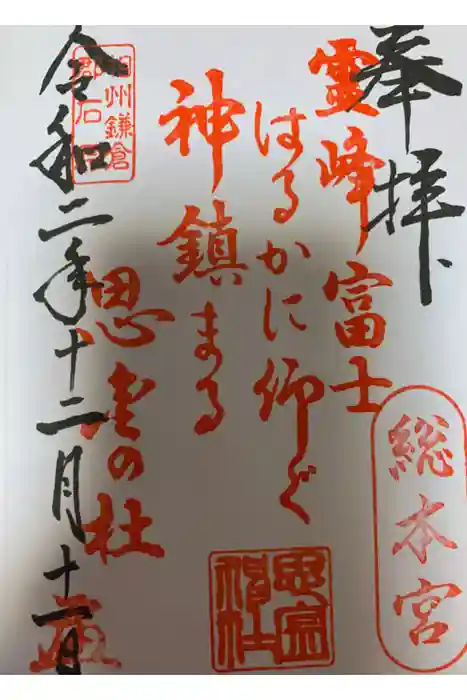 奉拝
霊峰富士
はるかに仰ぐ
神鎮まる
思金の杜
総本宮
思金神社
相州鎌倉
郡石口
令和二年十二月十一日